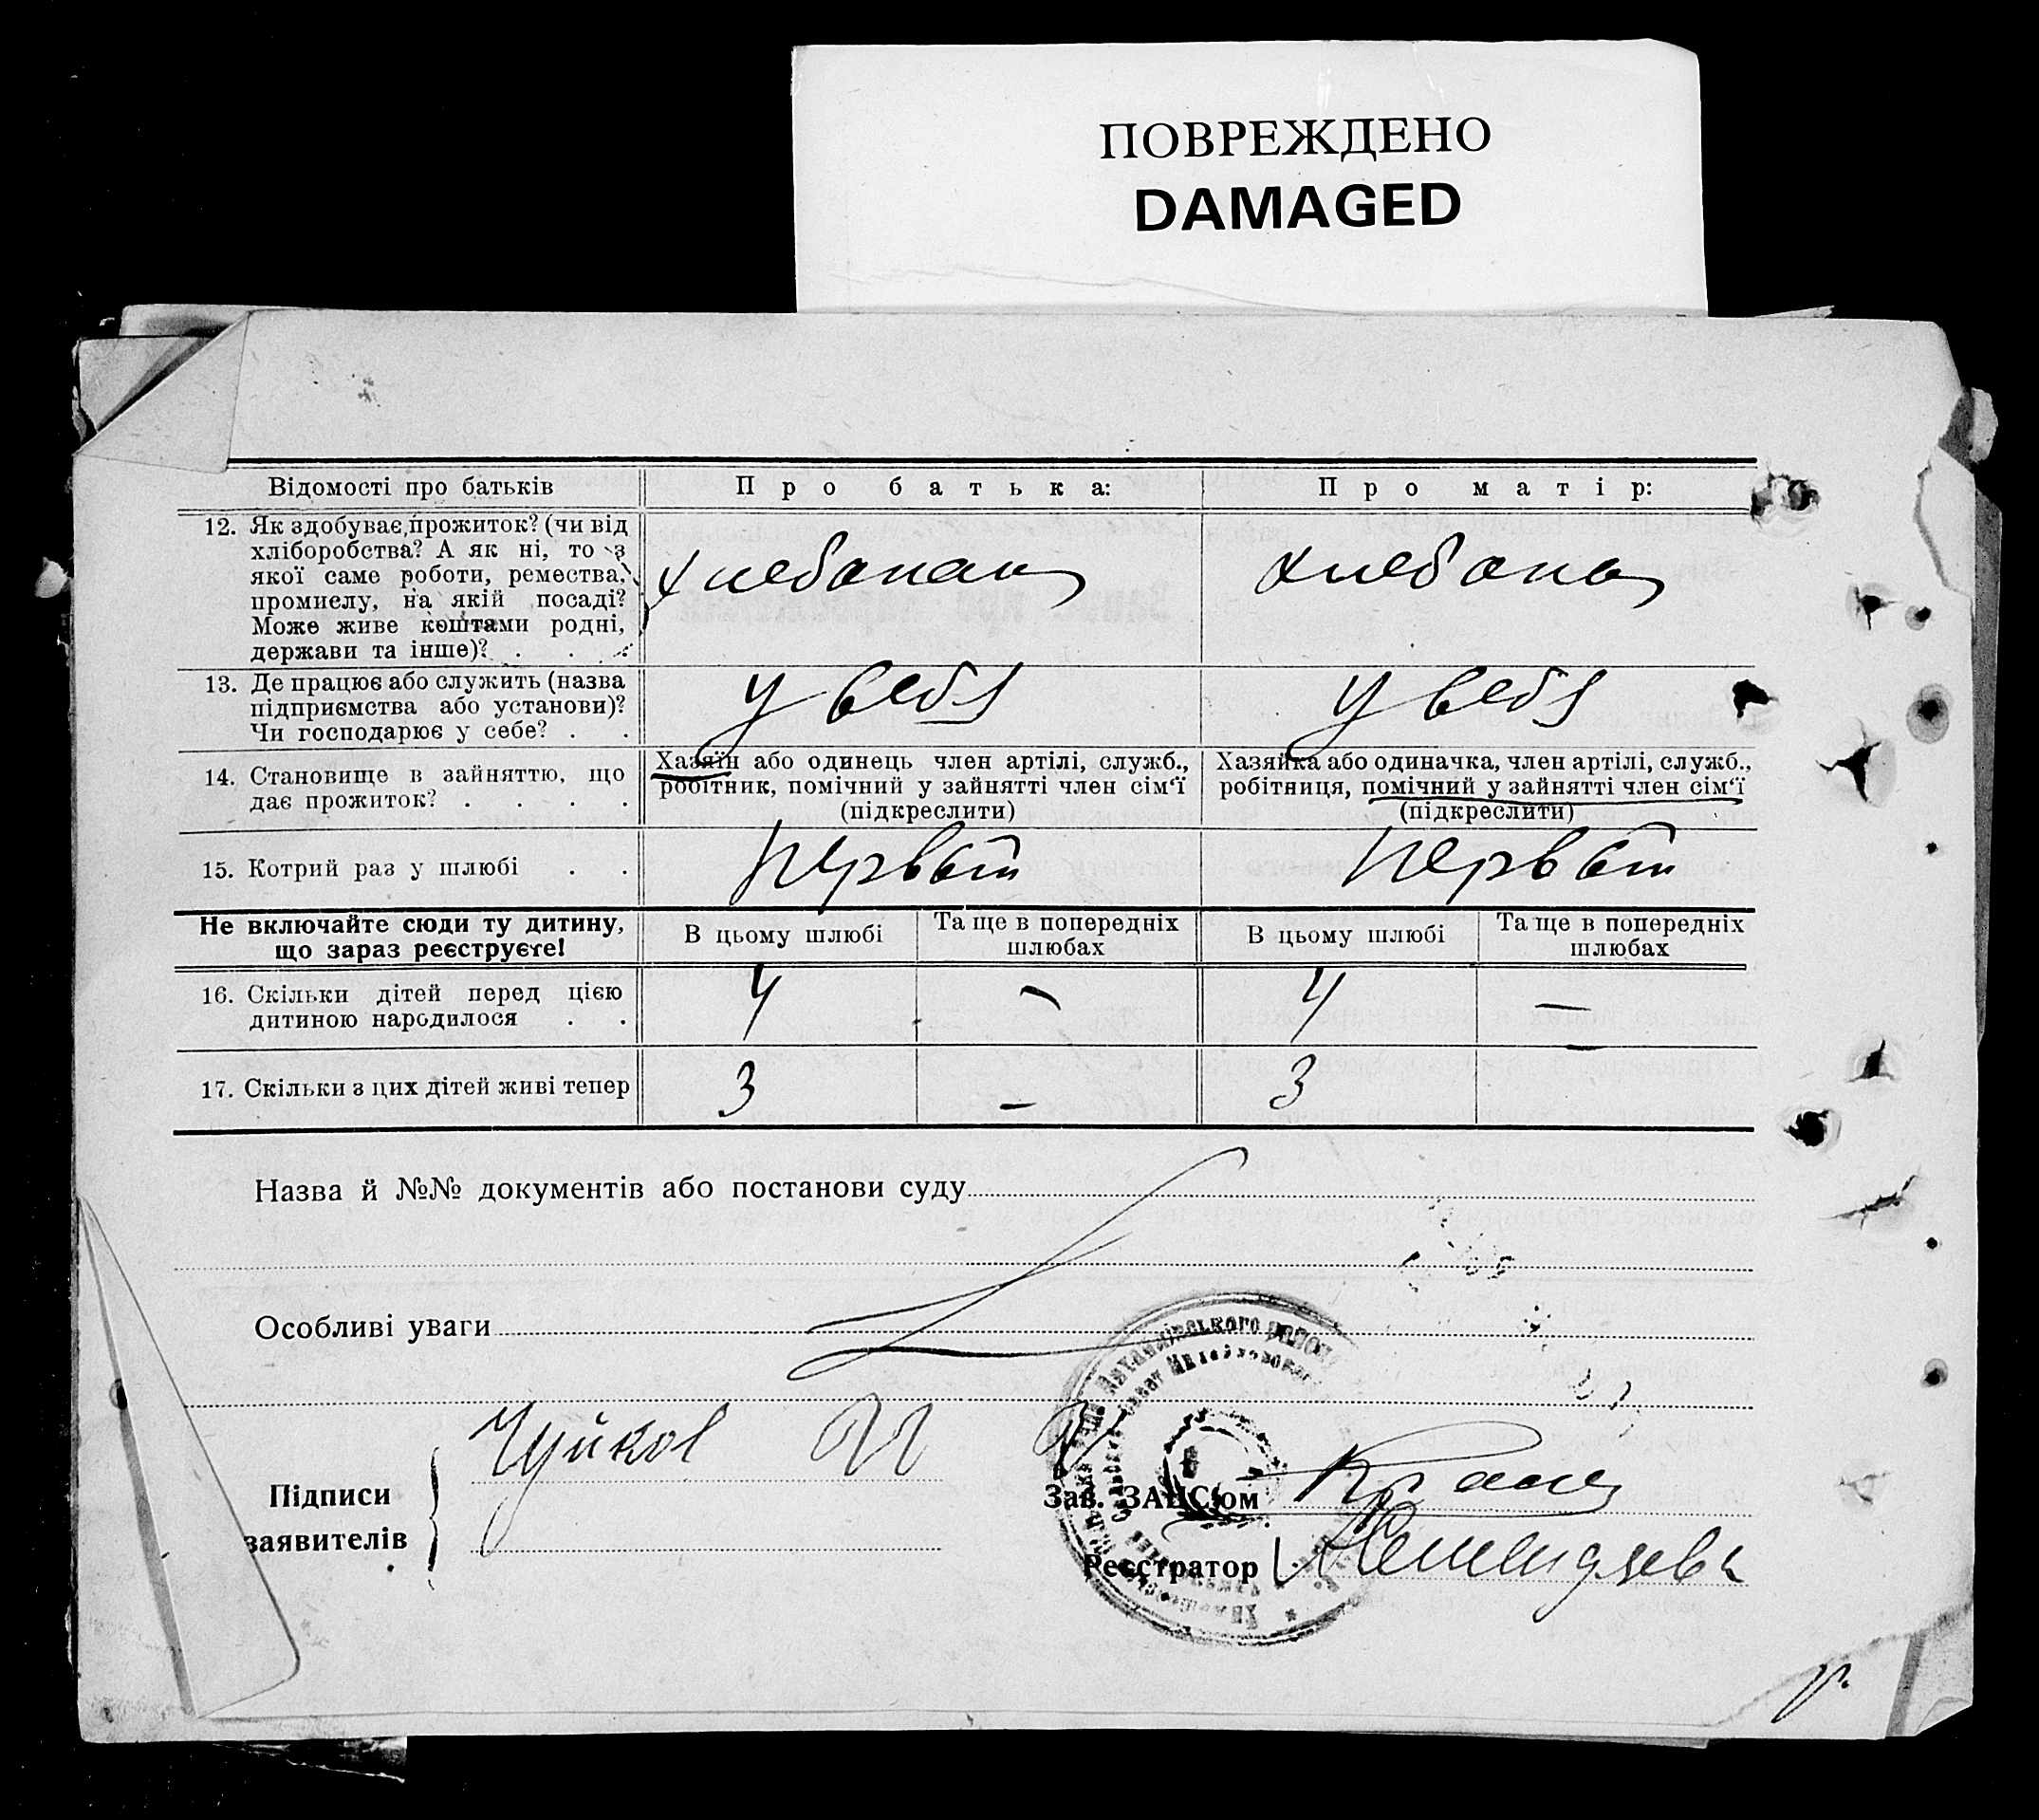 ПОВРЕЖДЕНО
DAMAGED
Відомості про батьків
Про батька:
Про матір:
12. Як здобуває прожиток? (чи від
хліборобства? А як ні, то з
якої саме роботи, ремества,
промислу, на якій посаді?
Може живе коштами родні,
держави та інше)? . . .
13. Де працює або служить (назва
підприємства або установи)?
Чи господарює у себе? . .
у себя
у себя
14. Становище в зайняттю, що
дає прожиток? . . . .
Хазяїн або одинець член артілі, служб.,
робітник, помічний у зайнятті член сім‘ї
(підкреслити)
Хазяйка або одиначка, член артілі, служб.,
робітниця, помічний у зайнятті член сім‘ї
(підкреслити)
15. Котрий раз у шлюбі . .
первый
первый
Не включайте сюди ту дитину,
що зараз реєструєте!
В цьому шлюбі
Та ще в попередніх
шлюбах
В цьому шлюбі
Та ще в попередніх
шлюбах
16. Скільки дітей перед цією
дитиною народилося . .
4
–
4
–
17. Скільки з цих дітей живі тепер
3
–
3
Назва й №№ документів або постанови суду
Особливі уваги
Підписи
заявителів
Чуйков
Зав. ЗАГС‘ом
Реєстратор